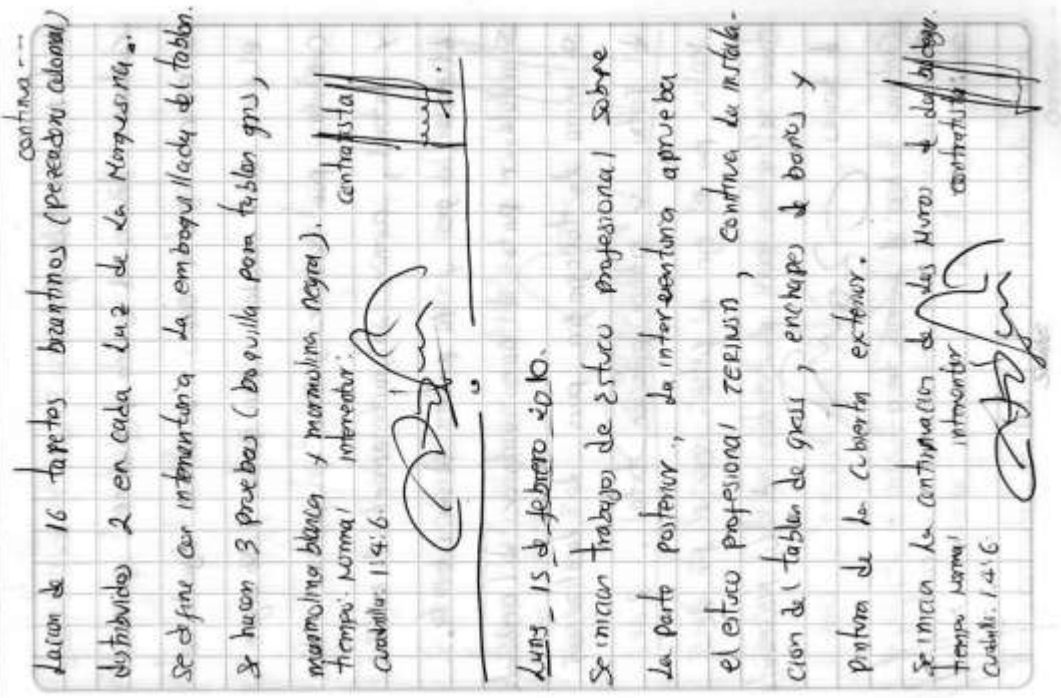 continua---
Lacion de 16 tapetes bizantinos (pegadoni alomal)
distribuidos 2 en cada Luz de La Marquesina.
Se define con interventoria La emboquillada del tablon.
Se hacen 3 pruebas (boquilla para tablon gris,
marmolina blanca y marmolina negra).
tiempo: Normal interventor: contratista
cuadrilla: 1:4:6.
Lunes_ 15 de febrero 2010.
Se inician trabajos de Estuco profesional sobre
La parte posterior, La interventoria aprueba
el estuco profesional TERINSD, continua La instala-
cion del tablon de gress, enchapes de baños y
pintura de La cubierta exterior.
Se inician La continuacion de Los Muros de La bodega.
tiempo: Normal interventor contratista:
Cuadrilla: 1:4:6